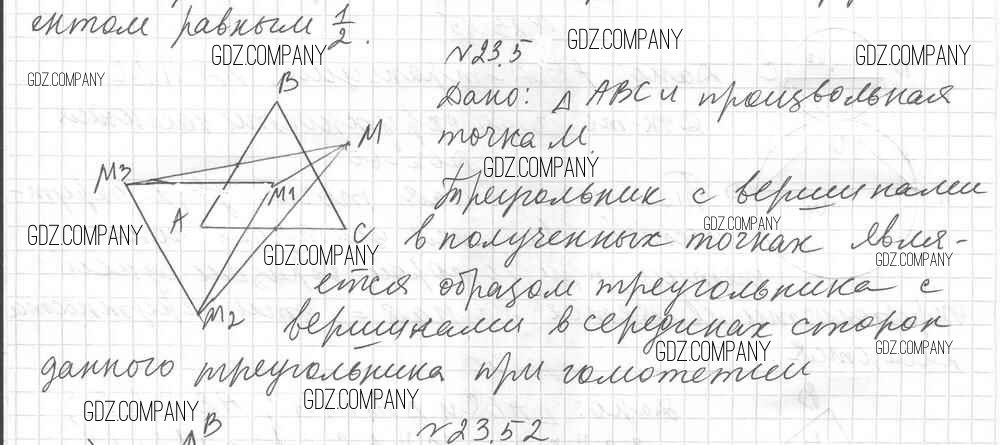 ентом равным 1/2.
GDZ.COMPANY
№23.5
GDZ.COMPANY
GDZ.COMPANY
GDZ.COMPANY
B
Дано: △ ABC и произвольная
M
точка M.
GDZ.COMPANY
M3
M1
Треугольник с вершинами
A
C
GDZ.COMPANY
GDZ.COMPANY
в полученных точках явля-
GDZ.COMPANY
GDZ.COMPANY
ется образом треугольника с
M2
вершинами в серединах сторон
GDZ.COMPANY
GDZ.COMPANY
данного треугольника при гомотетии
GDZ.COMPANY
GDZ.COMPANY
B
№23.52